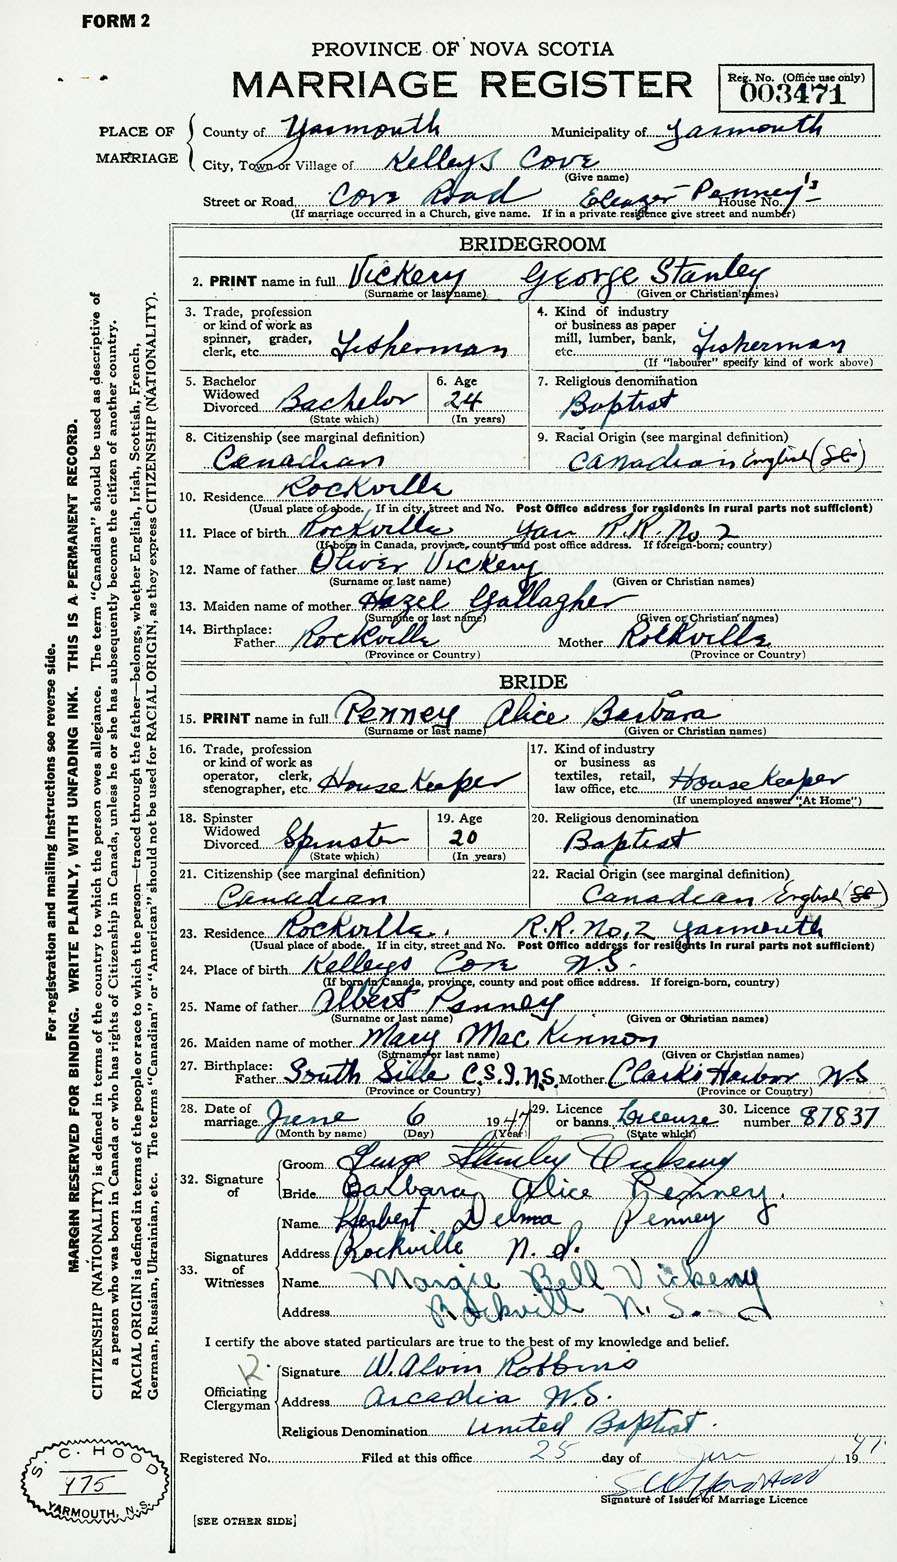 FORM 2
PROVINCE OF NOVA SCOTIA
MARRIAGE REGISTER
Reg. No. (Office use only)
003471
PLACE OF MARRIAGE
County of Yarmouth Municipality of Yarmouth
City, Town or Village of Kelleys Cove
(Give name)
Street or Road, Cove Road Eleazer Penney's House No.
(If marriage occurred in a Church, give name. If in a private residence give street and number)
BRIDEGROOM
2. PRINT name in full Vickery George Stanley
(Surname or last name) (Given or Christian names)
3. Trade, profession or kind of work as spinner, grader, clerk, etc. Fisherman
4. Kind of industry or business as paper mill, lumber, bank, etc. Fisherman
(If "labourer" specify kind of work above)
5. Bachelor Widowed Divorced Bachelor
(State which)
6. Age 24
(In years)
7. Religious denomination
Baptist
8. Citizenship (see marginal definition)
Canadian
9. Racial Origin (see marginal definition)
Canadian English
10. Residence Rockville
(Usual place of abode. If in city, street and No. Post Office address for residents in rural parts not sufficient)
11. Place of birth Rockville Yar R.R. No 2
(If born in Canada, province, county and post office address. If foreign-born, country)
12. Name of father Oliver Vickery
(Surname or last name) (Given or Christian names)
13. Maiden name of mother Hazel Gallagher
(Surname or last name) (Given or Christian names)
14. Birthplace: Father Rockville Mother Rockville
(Province or Country) (Province or Country)
BRIDE
15. PRINT name in full Penney Alice Barbara
(Surname or last name) (Given or Christian names)
16. Trade, profession or kind of work as operator, clerk, stenographer, etc. House Keeper
17. Kind of industry or business as textiles, retail, law office, etc. House Keeper
(If unemployed answer "At Home")
18. Spinster Widowed Divorced Spinster
(State which)
19. Age 20
(In years)
20. Religious denomination
Baptist
21. Citizenship (see marginal definition)
Canadian
22. Racial Origin (see marginal definition)
Canadian English
23. Residence Rockville. R.R. No, 2 Yarmouth
(Usual place of abode. If in city, street and No. Post Office address for residents in rural parts not sufficient)
24. Place of birth Kelleys Cove N.S.
(If born in Canada, province, county and post office address. If foreign-born, country)
25. Name of father Albert Penney
(Surname or last name) (Given or Christian names)
26. Maiden name of mother Mary Mac Kinnon
(Surname or last name) (Given or Christian names)
27. Birthplace: Father South Side C.S.I. N.S. Mother Clark's Harbor N S
(Province or Country) (Province or Country)
28. Date of marriage June 6 1947
(Month by name) (Day) (Year)
29. Licence or banns License
(State which)
30. Licence number 87837
32. Signature of
Groom George Stanley Vickery
Bride Barbara Alice Penney.
33. Signatures of Witnesses
Name Herbert Delma Penney
Address Rockville N. S.
Name Margie Bell Vickery
Address Rockvill N. S.
I certify the above stated particulars are true to the best of my knowledge and belief.
Officiating Clergyman
Signature W. Alvin Robbins
Address Arcadia N.S.
Religious Denomination United Baptist.
Registered No. Filed at this office 25 day of Jun 1947
Signature of Issuer of Marriage Licence
[SEE OTHER SIDE]
S. C. HOOD
175
YARMOUTH, N.S.
For registration and mailing instructions see reverse side.
MARGIN RESERVED FOR BINDING. WRITE PLAINLY, WITH UNFADING INK. THIS IS A PERMANENT RECORD.
CITIZENSHIP (NATIONALITY) is defined in terms of the country to which the person owes allegiance. The term "Canadian" should be used as descriptive of
a person who was born in Canada or who has rights of Citizenship in Canada, unless he or she has subsequently become the citizen of another country.
RACIAL ORIGIN is defined in terms of the people or race to which the person—traced through the father—belongs, whether English, Irish, Scottish, French,
German, Russian, Ukrainian, etc. The terms "Canadian" or "American" should not be used for RACIAL ORIGIN, as they express CITIZENSHIP (NATIONALITY).